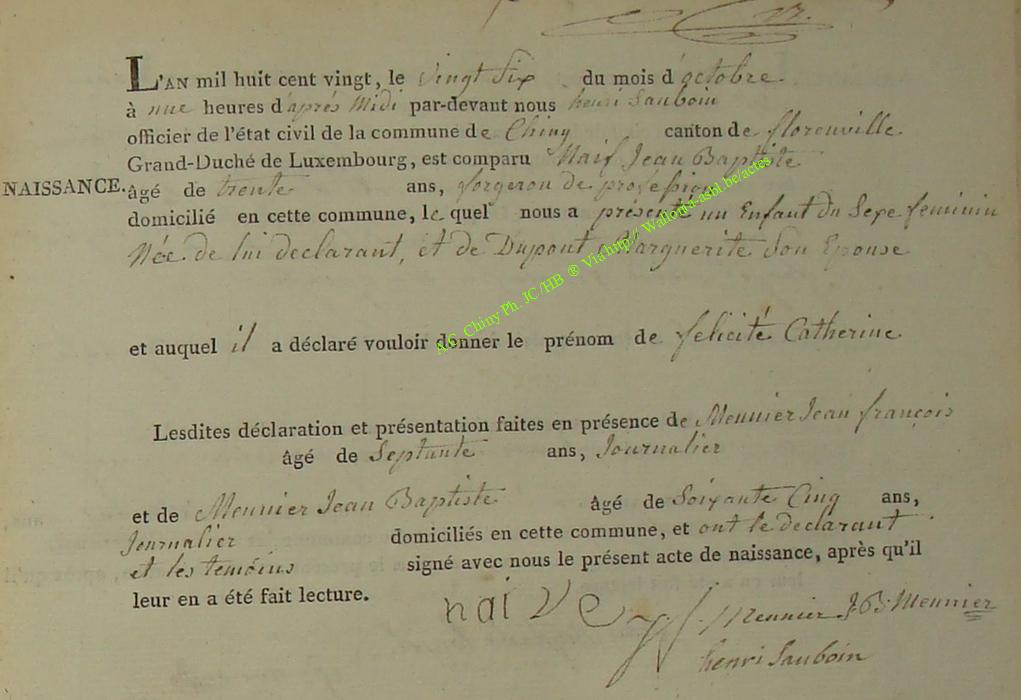 L'AN mil huit cent vingt, le vingt Six du mois d'octobre
à nue heures d'après Midi par-devant nous henri Sauboin
officier de l'état civil de la commune de Chiny canton de florenville
Grand-Duché de Luxembourg, est comparu Naif Jean Baptiste
NAISSANCE. âgé de trente ans, forgeron de profession
domicilié en cette commune, le quel nous a présenté un Enfant du Sexe feminin
Née de lui declarant, et de Dupont Marguerite Son Epouse
A.G. Chiny Ph. JC/HB ® Via http// Wallonia-asbl.be/actes
et auquel il a déclaré vouloir donner le prénom de félicité Catherine
Lesdites déclaration et présentation faites en présence de Meunier Jean françois
âgé de Septante ans, Journalier
et de Meunier Jean Baptiste âgé de Soixante Cinq ans,
Journalier domiciliés en cette commune, et ont le declarant
et les temoins signé avec nous le présent acte de naissance, après qu'il
leur en a été fait lecture.
naive Meunier J B Meunier
henri Sauboin